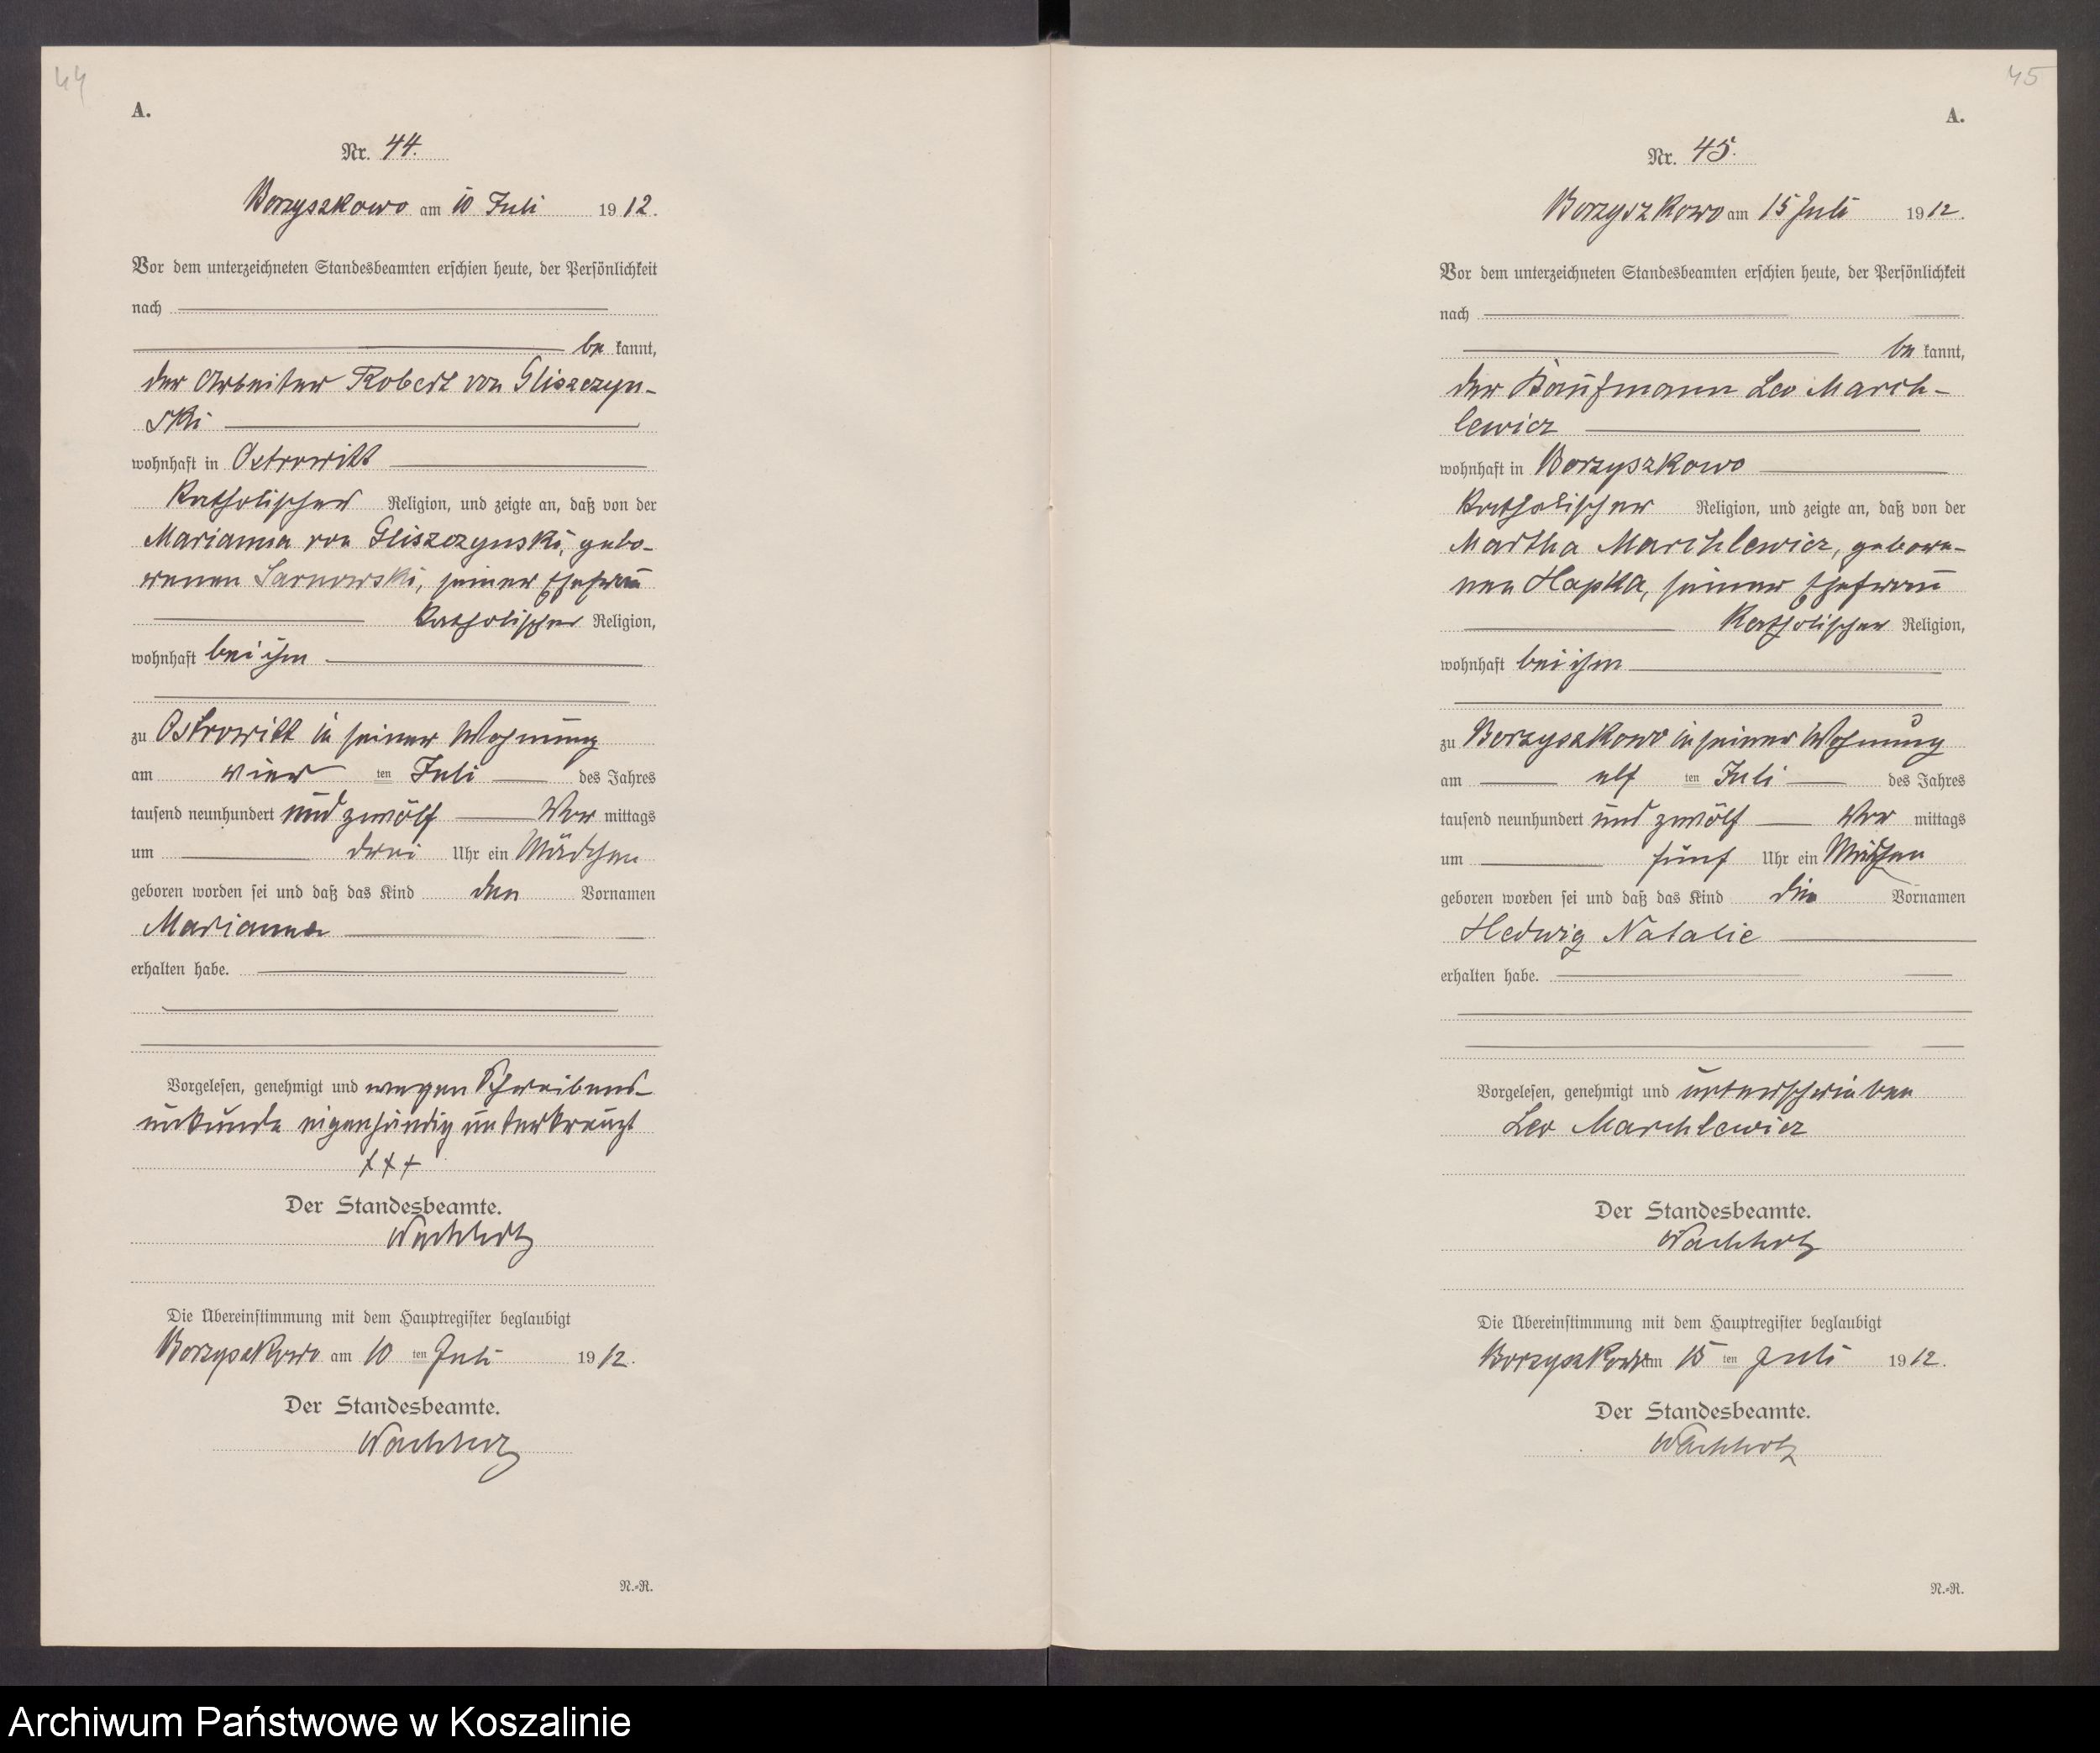 44
A.
Nr. 44.
Borzyszkowo am 10 Juli 1912.
Vor dem unterzeichneten Standesbeamten erschien heute, der Persönlichkeit
nach
be kannt,
der Arbeiter Robert von Gliszczyn-
ski
wohnhaft in Ostrowitt
katholischer Religion, und zeigte an, daß von der
Marianna von Gliszczynski, gebo-
renen Sarnowski, seiner Ehefrau
katholischer Religion,
wohnhaft bei ihm
zu Ostrowitt in seiner Wohnung
am vier ten Juli des Jahres
tausend neunhundert und zwölf Vor mittags
um drei Uhr ein Mädchen
geboren worden sei und daß das Kind den Vornamen
Marianna
erhalten habe.
Vorgelesen, genehmigt und wegen Schreibens-
unkunde eigenhändig unterkreuzt
+++
Der Standesbeamte.
Wachholz
Die Übereinstimmung mit dem Hauptregister beglaubigt
Borzyszkowo am 10 ten Juli 1912.
Der Standesbeamte.
Wachholz
N.-R.
45
A.
Nr. 45.
Borzyszkowo am 15 Juli 1912.
Vor dem unterzeichneten Standesbeamten erschien heute, der Persönlichkeit
nach
be kannt,
der Kaufmann Leo March-
lewicz
wohnhaft in Borzyszkowo
katholischer Religion, und zeigte an, daß von der
Martha Marchlewicz, gebore-
nen Hapka, seiner Ehefrau
katholischer Religion,
wohnhaft bei ihm
zu Borzyszkowo in seiner Wohnung
am elf ten Juli des Jahres
tausend neunhundert und zwölf Vor mittags
um fünf Uhr ein Mädchen
geboren worden sei und daß das Kind die Vornamen
Hedwig Natalie
erhalten habe.
Vorgelesen, genehmigt und unterschrieben
Leo Marchlewicz
Der Standesbeamte.
Wachholz
Die Übereinstimmung mit dem Hauptregister beglaubigt
Borzyszkowo am 15 ten Juli 1912.
Der Standesbeamte.
Wachholz
N.-R.
Archiwum Państwowe w Koszalinie